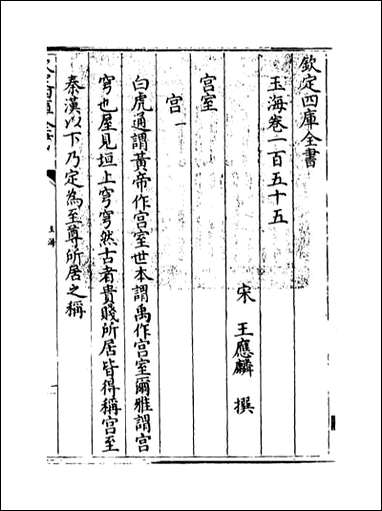 欽定四庫全書
玉海卷一百五十五
宋 王應麟 撰
宫室
宫一
白虎通謂黄帝作宫室世本謂禹作宫室爾雅謂宫
穹也屋見垣上穹穹然古者貴賤所居皆得稱宫至
秦漢以下乃定為至尊所居之稱
玉海
一